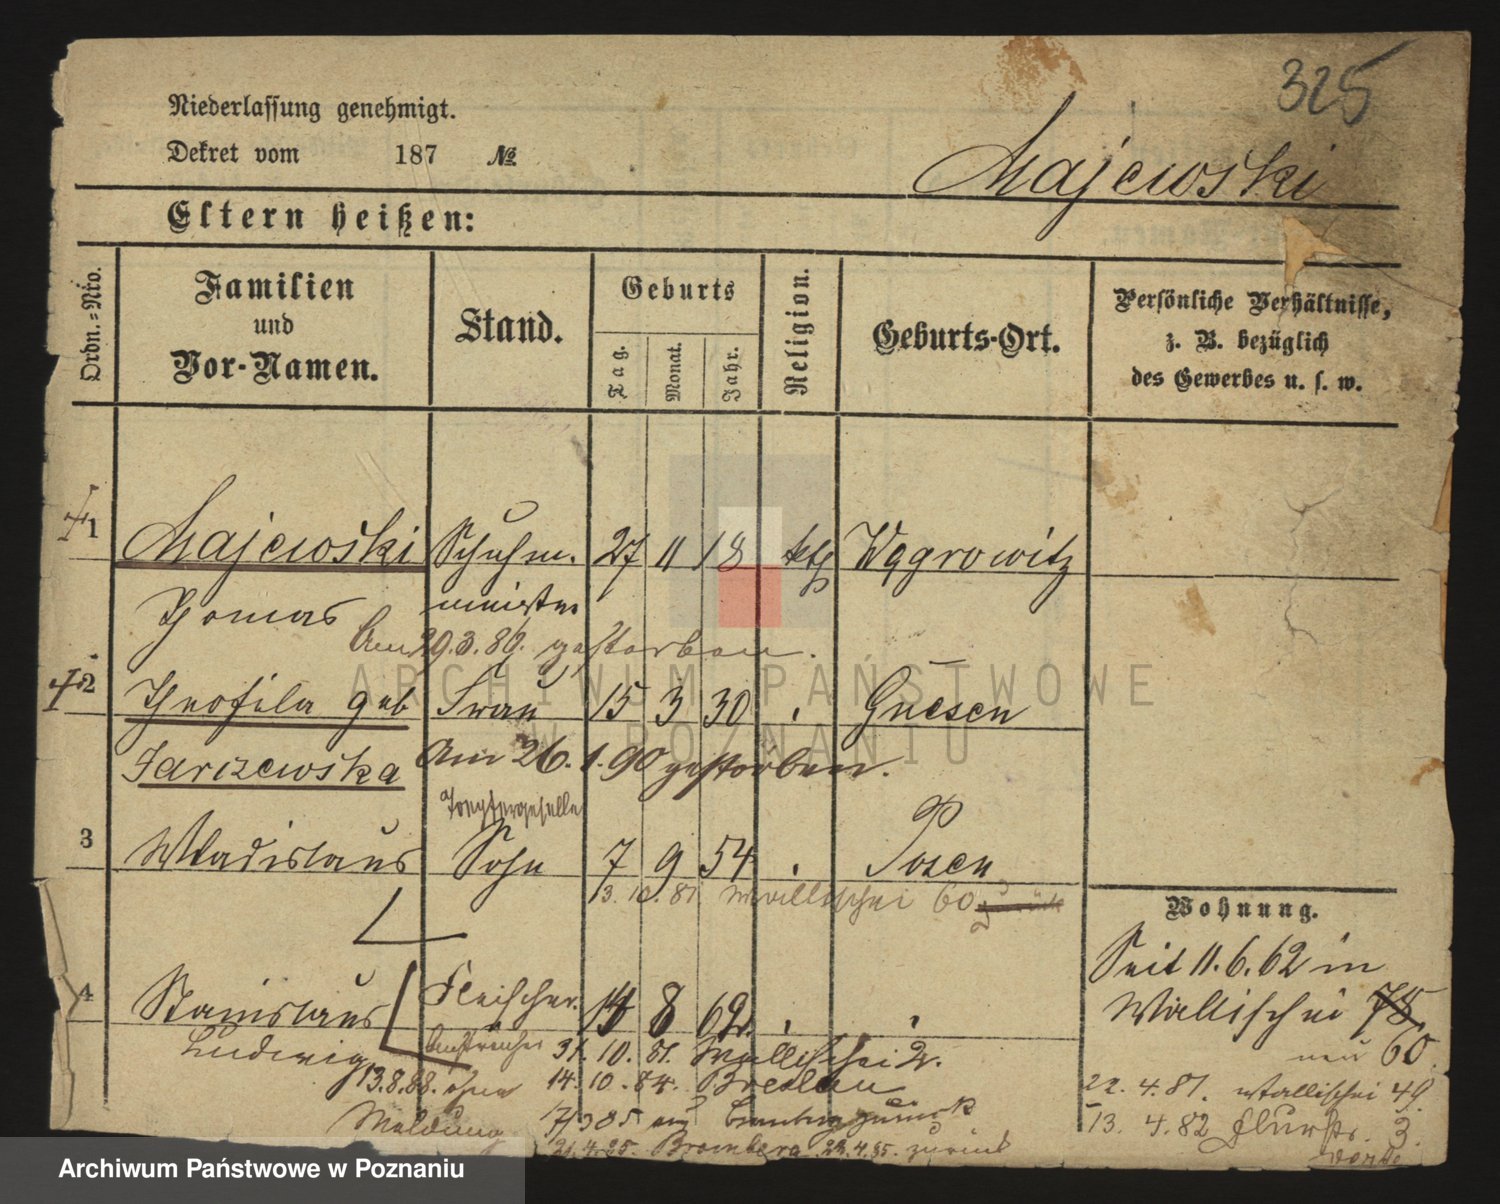 325
Niederlassung genehmigt.
Dekret vom 187 №
Majewski
Eltern heißen:
Ordn.=Nro.
Familien und Vor-Namen.
Stand.
Geburts
Tag.
Monat.
Jahr.
Religion.
Geburts-Ort.
Persönliche Verhältnisse, z. B. bezüglich des Gewerbes u. s. w.
1 Majewski Schuhm. 27 11 18 kth Wągrowitz
Thomas meister
Am 29.3.89. gestorben.
2 Theofila geb Frau 15 3 30 Gnesen
Jarizewska Am 26.1.90 gestorben.
3 Wladislaus Sohn 7 9 54 Posen
13.10.81. Wallischei 60 zurück
Wohnung.
Seit 11.6.62 in
Wallischei 75
neu 60
4 Stanislaus Fleischer. 14 8 62.
Ludwig 31.10.81. Wallischei 2.
13.8.88. ohne 14.10.84. Breslau
Meldung
21.4.85. Bromberg 22.4.85. zurück
22.4.81. Wallischei 49.
13.4.82 3.
ARCHIWUM PAŃSTWOWE
W POZNANIU
Archiwum Państwowe w Poznaniu